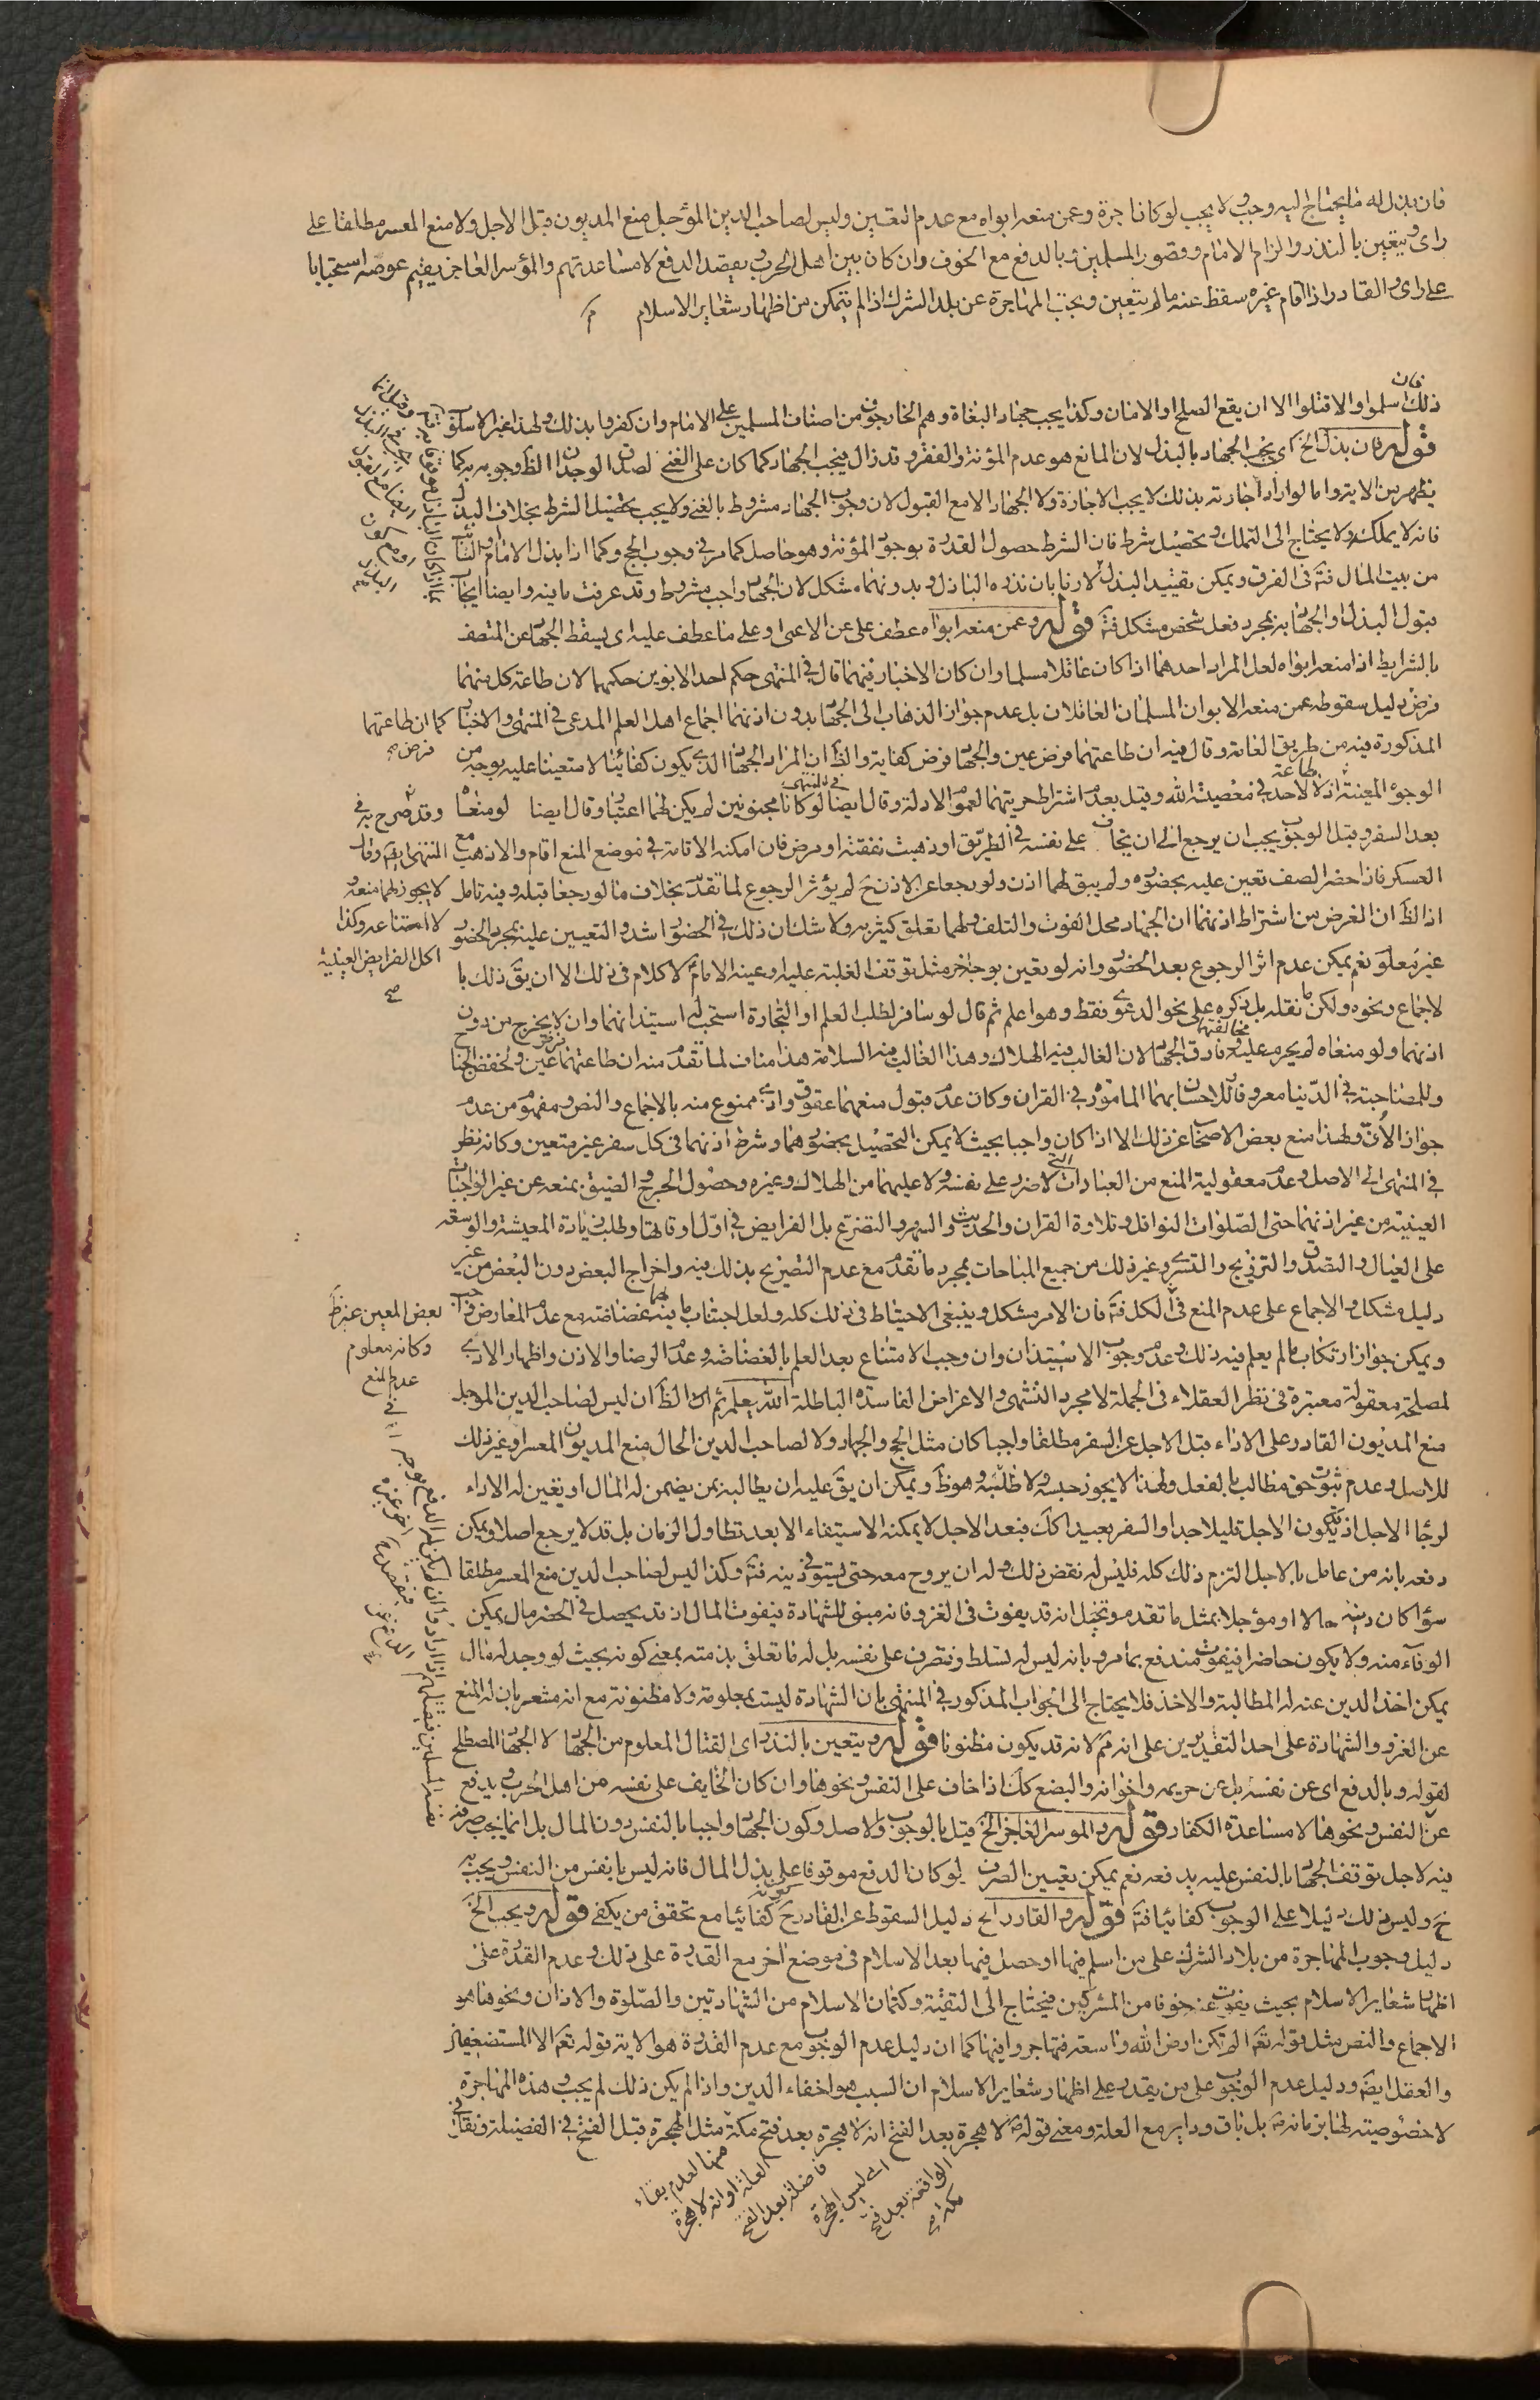 فان بذل له ما يحتاج اليه وجب ولا يجب لو كانا جرة وعمن منعه ابواه مع عدم التعيين وليس لصاحب الدين المؤجل منع المديون قبل الاجل ولا منع المعسر مطلقا على
راى ويتعين بالنذر والزام الامام وقصور المسلمين وبالدفع مع الخوف وان كان بين اهل الحرب ويقصد الدفع لا مساعدتهم والمؤسر العاجز يقيم عوضه استحبابا
على راى والقادر اذا اقام غيره سقط عنه ما لم يتعين ويجب المهاجرة عن بلد الشرك اذا لم يتمكن من اظهار شعاير الاسلام م
فان
ذلك اسلموا والا قتلوا الا ان يقع الصلح او الامان وكذا يجب جهاد البغاة وهم الخارجون من اصناف المسلمين على الامام وان كفروا بذلك ولهذا غير الاسلوب
قوله فان بذل الخ اى يجب الجهاد بالبذل لان المانع هو عدم المؤنة والفقر وقد زال فيجب الجهاد كما كان على الغنى لصدق الوجدان الظ وجوبه به كما
يظهر من الاية واما لو اراد اجارته بذلك لا يجب الاجارة ولا الجهاد الا مع القبول لان وجوب الجهاد مشروط بالغنى ولا يجب تحصيل الشرط بخلاف البذل
فانه لا يملك ولا يحتاج الى التملك وتحصيل شرط فان الشرط حصول القدرة بوجود المؤنة وهو حاصل كما مر في وجوب الحج وكما اذا بذل الامام او النائب
من بيت المال فت‍ه فى الفرق ويمكن تقييد البذل لازما بان نذره الباذل وبدونهما مشكل لان الجهاد واجب مشروط وقد عرفت ما فيه وايضا ايجاب
قبول البذل او الجهاد به بمجرد فعل شخص مشكل فت‍ه قوله وعمن منعه ابواه عطف على عن الاعمى او على ما عطف عليه اى يسقط الجهاد عن المتصف
بالشرايط اذا منعه ابواه لعل المراد احدهما اذا كان عاقلا مسلما وان كان الاخبار فيهما قال في المنتهى حكم احد الابوين حكمهما لان طاعة كل منهما
فرض دليل سقوطه عمن منعه الابوان المسلمان العاقلان بل عدم جواز الذهاب الى الجهاد بدون اذنهما اجماع اهل العلم المدعى في المنتهى والاخبار
المذكورة فيه من طريق العامة وقال فيه ان طاعتهما فرض عين والجهاد فرض كفاية والظ ان المراد الجهاد الذى يكون كفائيا لا متعينا عليه بوجه من
الوجوه المعينة اذ لا طاعة لاحد في معصية الله وقيل بعدم اشتراط حريتهما لعموم الادلة وقال ايضا لو كانا مجنونين لم يكن لهما اعتبار وقال ايضا لو منعاه
بعد السفر وقبل الوجوب يجب ان يرجع الا ان يخاف على نفسه في الطريق او ذهبت نفقته او مرض فان امكنه الاقامة في موضع المنع اقام والا ذهب مع
العسكر فاذا حضر الصف تعين عليه بحضوره ولم يبق لهما اذن ولو رجعا عن الاذن ح لم يؤثر الرجوع لما تقدم بخلاف ما لو رجعا قبله وفيه تامل
اذ الظ ان الغرض من اشتراط اذنهما ان الجهاد محل الفوت والتلف ولهما تعلق كثير به ولا شك ان ذلك في الحضور اشد والتعيين عليه بمجرد الحضور
غير معلوم نعم يمكن عدم اثر الرجوع بعد الحضور وانه لو تعين بوجه اخر مثل توقف الغلبة عليه او عينه الامام لا كلام فى ذلك الا ان يق ذلك با
لاجماع ونحوه ولكن ما نقله بل ذكره على نحو الدعوى فقط وهو اعلم ثم قال لو سافر لطلب العلم او التجارة استحب له استيذانهما وان لا يخرج من دون
اذنهما ولو منعاه لم يحرم عليه مخالفتهما وفارق الجهاد لان الغالب فيه الهلاك وهذا الغالب فيه السلامة هذا مناف لما تقدم منه ان طاعتهما فرض عين وبخفض الجناح
وللمصاحبة في الدنيا معروفا وللاحسان بهما المأمور به في القران وكان عدم قبول منعهما عقوق واذى ممنوع منه بالاجماع والنص ومفهوم من عدم
جواز الاف ولهذا منع بعض الاصحاب عن ذلك الا اذا كان واجبا بحيث لا يمكن التحصيل بحضورهما وشرط اذنهما فى كل سفر غير متعين وكانه نظر
في المنتهى الى الاصل وعدم معقولية المنع من العبادات التى لا ضرر على نفسه ولا عليهما من الهلاك وغيره وحصول الحرج والضيق بمنعه عن غير الواجبات
العينية من غير اذنهما حتى الصلوات النوافل وتلاوة القران والحديث والسهر والتضرع بل الفرايض في اول اوقاتها وطلب زيادة المعيشة والوسعة
على العيال والتصدق والتزويج والتسرى وغير ذلك من جميع المباحات بمجرد ما تقدم مع عدم التصريح بذلك فيه واخراج البعض دون البعض من غير
دليل مشكل والاجماع على عدم المنع في الكل فت‍ه فان الامر مشكل وينبغى الاحتياط فى ذلك كله ولعل اجتناب ما فيه غضاضة مع عدم المعارض
ويمكن جواز ارتكاب ما لم يعلم فيه ذلك وعدم وجوب الاستيذان وان وجب الامتناع بعد العلم بالغضاضة وعدم الرضا والاذن واظهار الاذى
لمصلحة معقولة معتبرة فى نظر العقلاء فى الجملة لا مجرد التشهى والاغراض الفاسدة الباطلة الله يعلم ثم ان الظ ان ليس لصاحب الدين المؤجل
منع المديون القادر على الاداء قبل الاجل عن السفر مطلقا واجبا كان مثل الحج والجهاد ولا لصاحب الدين الحال منع المديون المعسر وغير ذلك
للاصل وعدم ثبوت حق مطالب بالفعل ولهذا لا يجوز حبسه ولا طلبه وهو ظ ويمكن ان يق عليه ان يطالبه بمن يضمن له المال او يعين له الاداء
لو جاء الاجل اذ قد يكون الاجل قليلا جدا والسفر بعيدا كك فبعد الاجل لا يمكنه الاستيفاء الا بعد تطاول الزمان بل قد لا يرجع اصلا ويمكن
دفعه بانه من عامل بالاجل التزم ذلك كله فليس له نقض ذلك وله ان يروح معه حتى يستوفى دينه فت‍ه وكذا ليس لصاحب الدين منع المعسر مطلقا
سواء كان دينه حالا او مؤجلا بمثل ما تقدم وتخيل انه قد يفوت فى الغزو فانه مبنى للشهادة فيفوت المال اذ قد يحصل في الحضر مال يمكن
الوفاء منه ولا يكون حاضرا فيفوت مندفع بما مر وبانه ليس له تسلط وتصرف على نفسه بل له ما تعلق بذمته بمعنى كونه بحيث لو وجد له مال
يمكن اخذ الدين عنه له المطالبة والاخذ فلا يحتاج الى الجواب المذكور في المنتهى بان الشهادة ليست بمعلومة ولا مظنونة مع انه مشعر بان له المنع
عن الغزو والشهادة على احد التقديرين على انه قد يكون مظنونا قوله ويتعين بالنذر اى القتال المعلوم من الجهاد لا الجهاد المصطلح
لقوله وبالدفع اى عن نفسه بل عن حريمه واخوانه والبضع كك اذا خاف على النفس ونحوها وان كان الخايف على نفسه من اهل الحرب ويدفع
عن النفس ونحوها لا مساعدة الكفار قوله والموسر العاجز الخ قيل بالوجوب والاصل وكون الجهاد واجبا بالنفس دون المال بل انما يجب صرفه
فيه لاجل توقف الجهاد بالنفس عليه يدفعه نعم يمكن تعيين الصرف لو كان الدفع موقوفا على بذل المال فانه ليس بانفس من النفس ويجب به
ح وليس ذلك دليلا على الوجوب كفائيا فت‍ه قوله والقادر الخ دليل السقوط عن القادر ح كونه كفائيا مع تحقق من يكفى قوله ويجب الخ
دليل وجوب المهاجرة من بلاد الشرك على من اسلم فيها او حصل فيها بعد الاسلام فى موضع اخر مع القدرة على ذلك وعدم القدرة على
اظهار شعاير الاسلام بحيث يفوت عنه خوفا من المشركين فيحتاج الى التقية وكتمان الاسلام من الشهادتين والصلوة والاذان ونحوها هو
الاجماع والنص مثل قوله تعه الم تكن ارض الله واسعة فتهاجروا فيها كما ان دليل عدم الوجوب مع عدم القدرة هو الاية قوله تعه الا المستضعفين
والعقل ايضه ودليل عدم الوجوب على من يقدر على اظهار شعاير الاسلام ان السبب هو اخفاء الدين واذا لم يكن ذلك لم يجب وهذه المهاجرة
لا خصوصية لها بزمانه ص بل باق وداير مع العلة ومعنى قوله ص لا هجرة بعد الفتح انه لا هجرة بعد فتح مكة مثل الهجرة قبل الفتح في الفضيلة
منها لعدم بقاء
العلة او انه لا هجرة
فاضلة بعد الفتح
اى ليس الهجرة
الواقعة بعد فتح
مكة
كما ان طاعتهما
فرض صح
وقد صرح به في
المنتهى ايضه وقال
لا يجوز لهما منعه و
لا امتناعه وكذا
كل الفرايض العينية
صح
لبعض المعين غير ظ
وكانه معلوم
عدم المنع